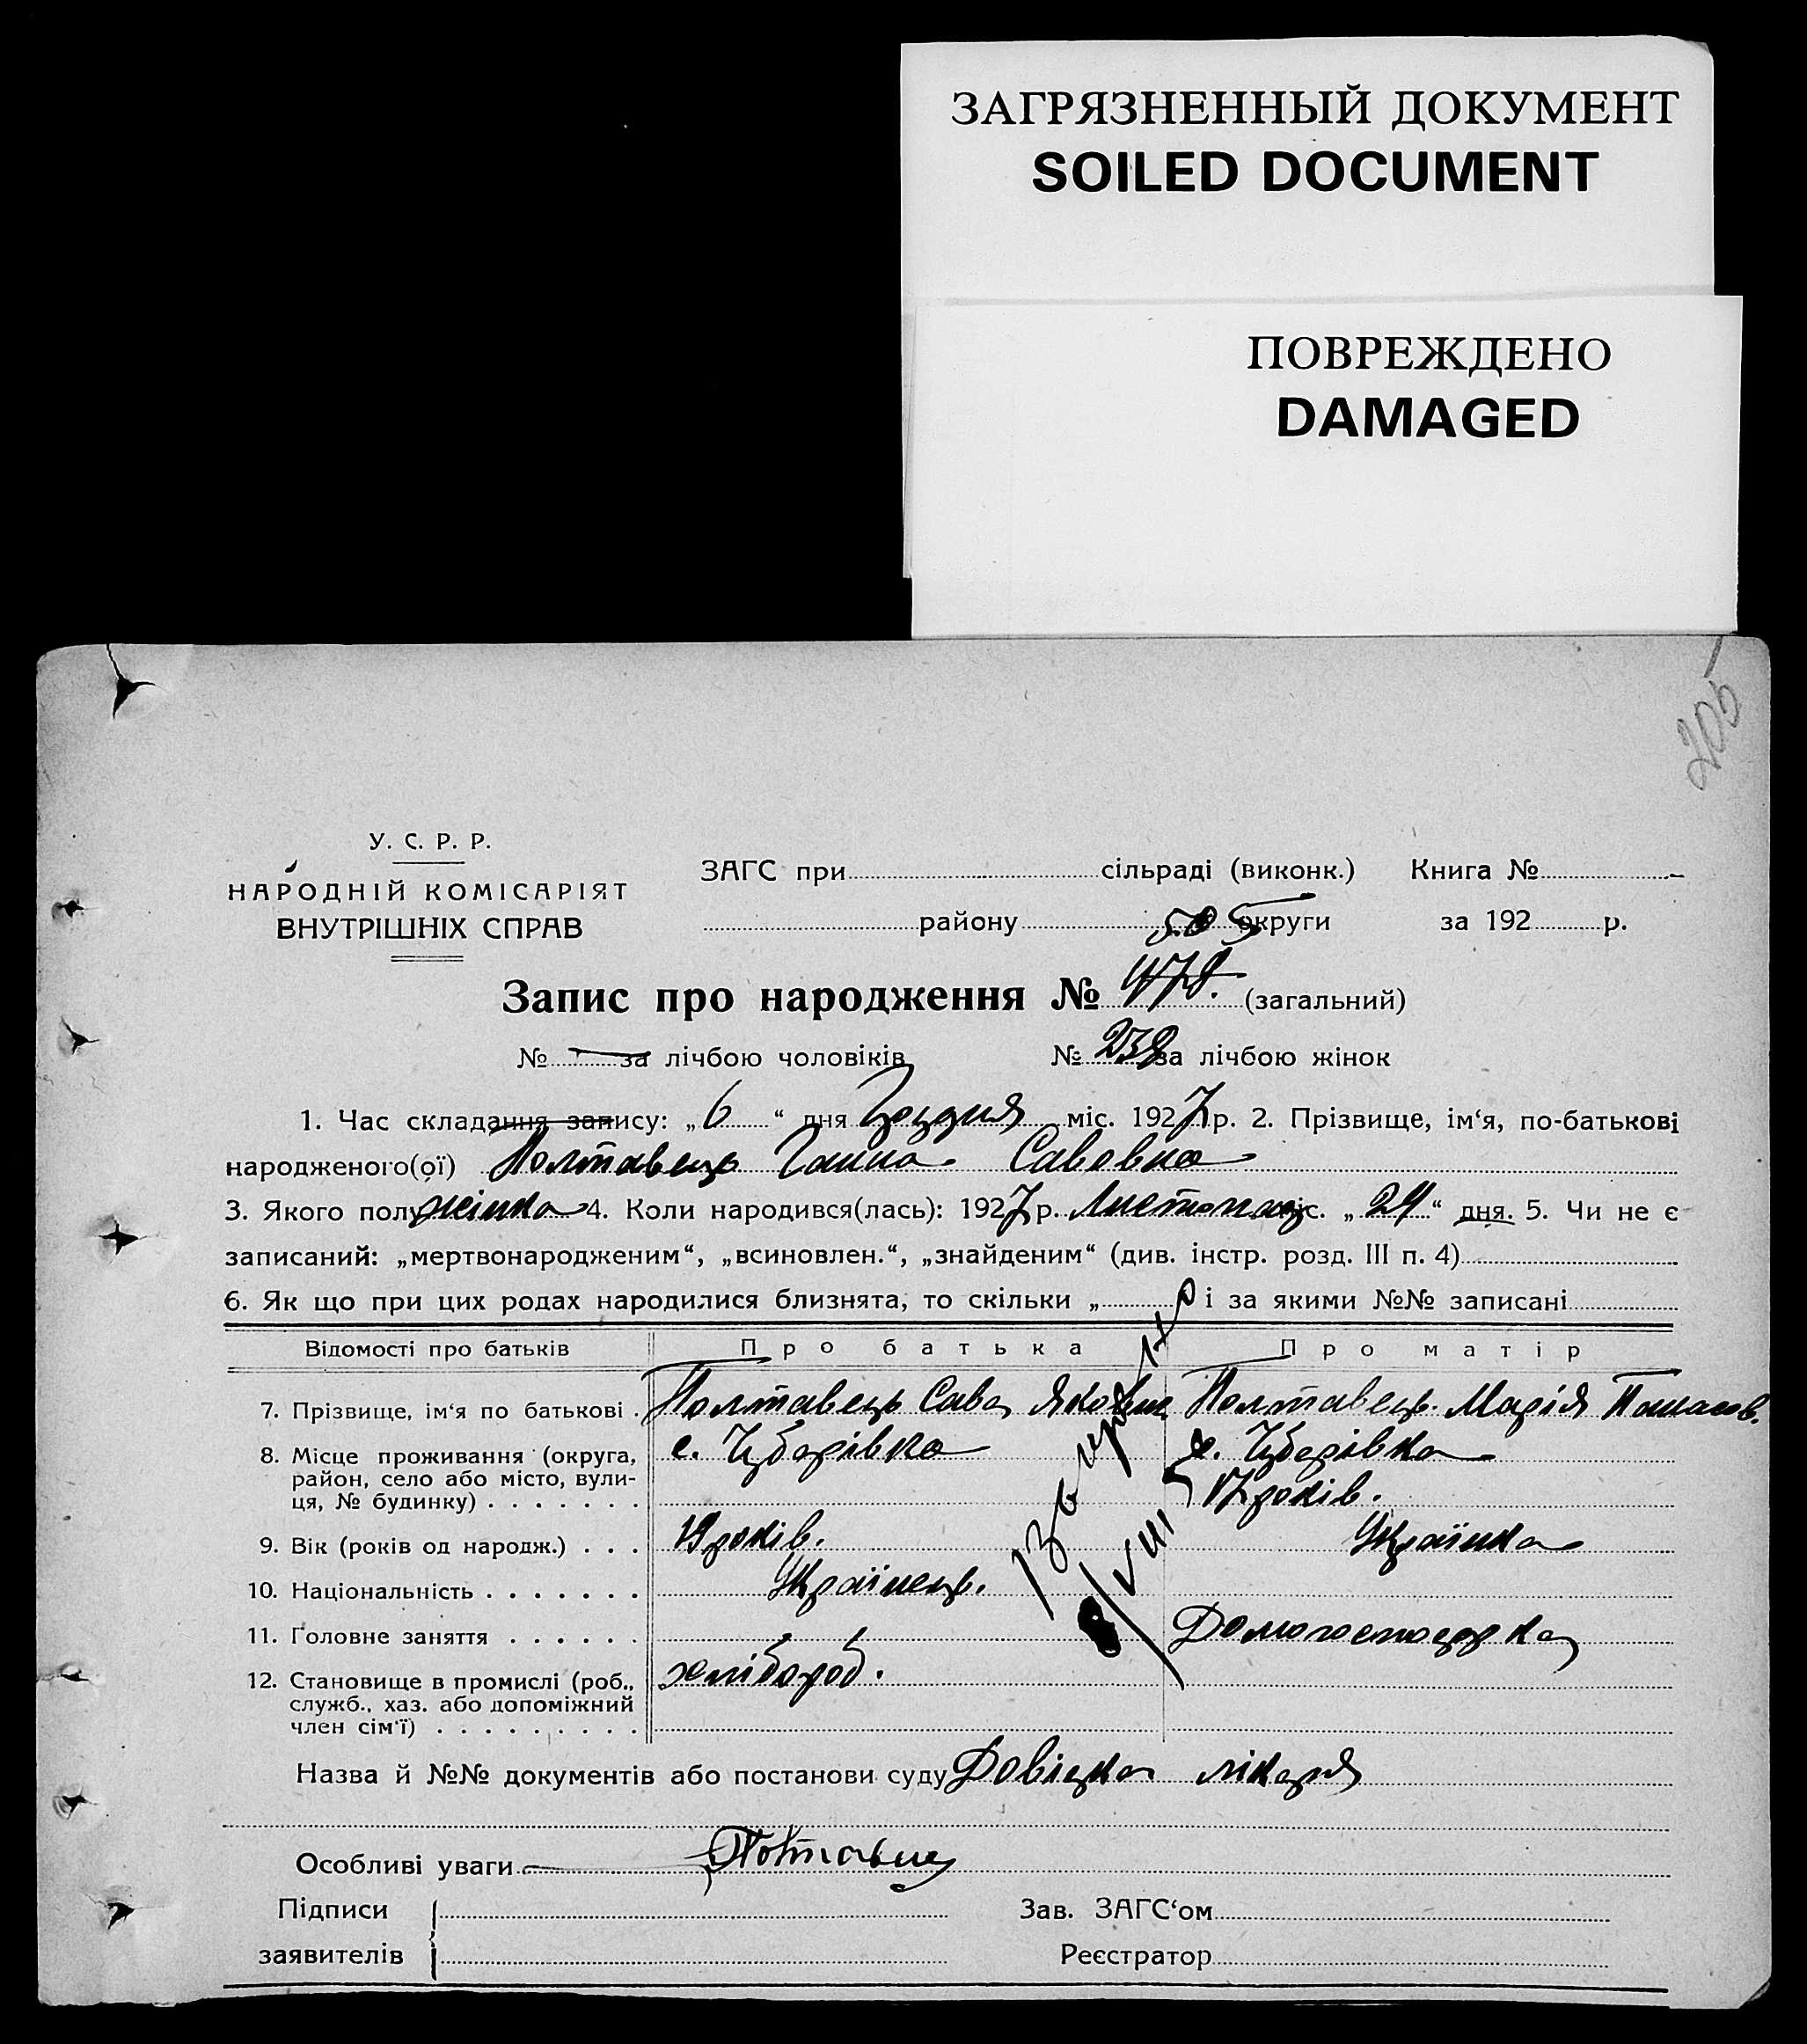 ЗАГРЯЗНЕННЫЙ ДОКУМЕНТ
SOILED DOCUMENT
ПОВРЕЖДЕНО
DAMAGED
205
У. С. Р. Р.
НАРОДНІЙ КОМІСАРІЯТ
ВНУТРІШНІХ СПРАВ
ЗАГС при сільраді (виконк.) Книга №
району округи за 192 р.
505
Запис про народження № 478. (загальний)
№ — за лічбою чоловіків № 238 за лічбою жінок
1. Час складання запису: „ 6 “ дня Грудня міс. 1927 р. 2. Прізвище, ім‘я, по-батькові
народженого(ої) Полтавець Ганна Савовна
3. Якого полу жінка 4. Коли народився(лась): 1927 р. Листопад міс. „ 24 “ дня. 5. Чи не є
записаний: „мертвонародженим“, „всиновлен.“, „знайденим“ (див. інстр. розд. III п. 4)
6. Як що при цих родах народилися близнята, то скільки „ і за якими №№ записані
Відомості про батьків Про батька Про матір
7. Прізвище, ім‘я по батькові . Полтавець Сава Якович Полтавець Марія Панасов.
8. Місце проживання (округа, район, село або місто, вули-ця, № будинку) . . . . . . . с. Чубарівка с. Чубарівка
17 років.
9. Вік (років од народж.) . . . 19 років. Українка
10. Національність . . . . . . . Українець.
11. Головне заняття . . . . . . Домогосподарка
12. Становище в промислі (роб., служб., хаз. або допоміжний член сім‘ї) . . . . . . . . . хлібороб.
VIII
Назва й №№ документів або постанови суду Довідка лікаря
Особливі уваги — Полтавец
Підписи
заявителів
Зав. ЗАГС‘ом
Реєстратор